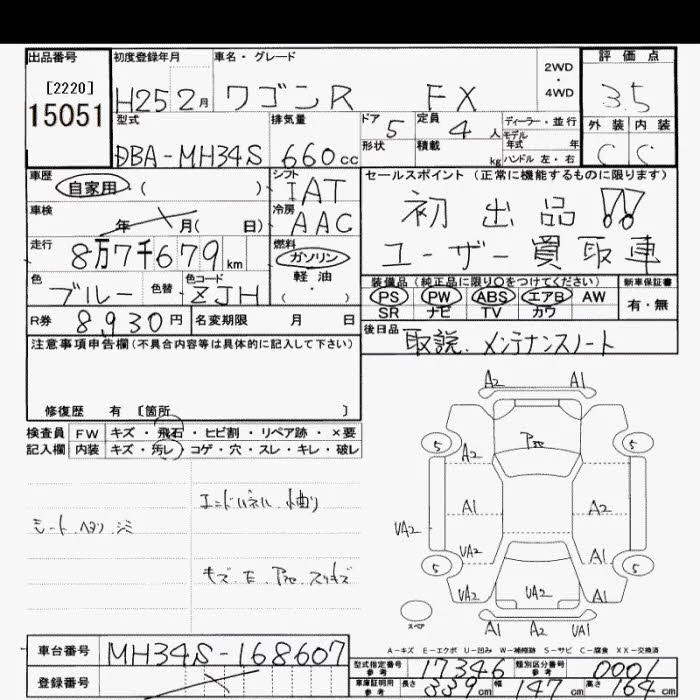 出品番号 初度登録年月 車名・グレード 2WD・4WD 評価点
[2220]
15051
H25 2月 ワゴンR FX 3.5
外装 内装
C C
型式 排気量 ドア 定員 ディーラー・並行
DBA-MH34S 660cc 5 4人 モデル年式 年
形状 積載 kg ハンドル 左・右
車歴 自家用・( ) シフト IAT
セールスポイント(正常に機能するものに限ります)
車検 年 月( 日) 冷房 AAC
初出品!!
走行 8万7千679km 燃料 ガソリン・軽油・( )
ユーザー買取車
色 ブルー 色替 色コード ZJH
装備品(純正品に限り○をつけてください) 新車保証書
PS PW ABS エアB AW 有・無
SR ナビ TV カワ
R券 8,930円 名変期限 月 日
後日品 取説.メンテナンスノート
注意事項申告欄(不具合内容等は具体的に記入して下さい)
修復歴 有 [箇所 ]
検査員 FW キズ・飛石・ヒビ割・リペア跡・×要
記入欄 内装 キズ・汚レ・コゲ・穴・スレ・キレ・破レ
シート.ヘタリ シミ
A2 A1
5 5
A2
A1 A2
UA2 UA2 A1
5 5
UA2 UA2 A1
スペア
A1 A2 UA1
A-キズ E-エクボ U-凹み W-補修跡 S-サビ C-腐食 XX-交換済
車台番号 MH34S-168607
型式指定番号 参考 17346 類別区分番号 参考 0001
登録番号
車庫証明用 参考 長さ 339cm 幅 147cm 高さ 164cm